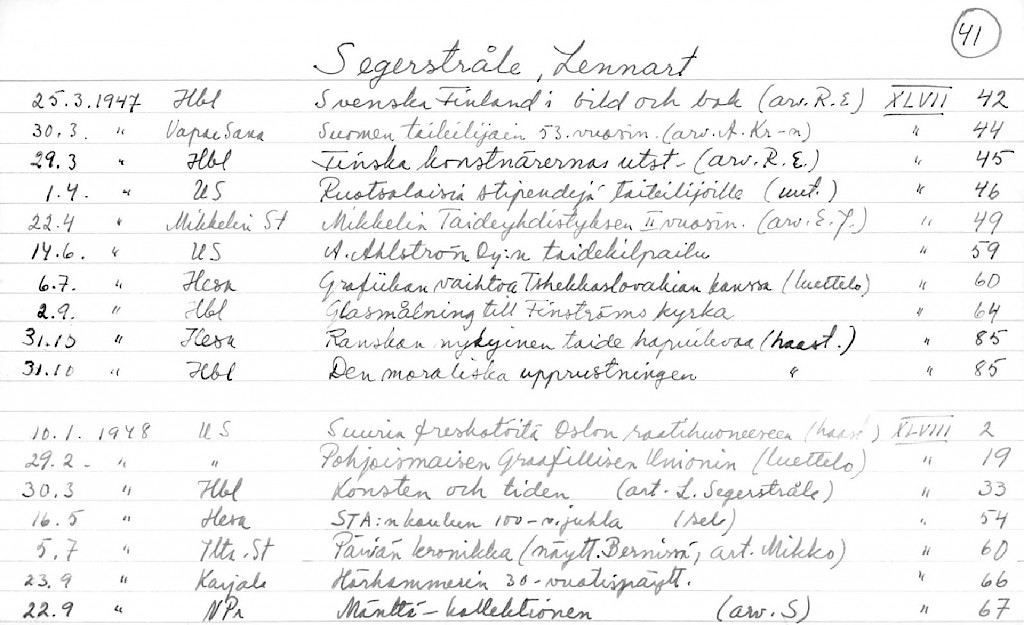 41
Segerstråle, Lennart
25.3.1947 Hbl Svenska Finland i bild och bok (arv. R.E) XLVII 42
30.3. " Vapaa Sana Suomen taiteilijain 53. vuosin. (arv. A. Kr-n) " 44
29.3 " Hbl Finska konstnärernas utst- (arv. R.E.) " 45
1.4. " US Ruotsalaisia stipendejä taiteilijoille (uut.) " 46
22.4 " Mikkelin St Mikkelin Taideyhdistyksen II vuosin. (arv. E.J.) " 49
14.6. " US A. Ahlström Oy:n taidekilpailu " 59
6.7. " Hesa Grafiikan vaihtoa Tshekkoslovakian kanssa (luettelo) " 60
2.9. " Hbl Glasmålning till Finströms kyrka " 64
31.10 " Hesa Ranskan nykyinen taide hapuilevaa (haast.) " 85
31.10 " Hbl Den moraliska upprustningen " " 85
10.1. 1948 US Suuria freskotöitä Oslon raatihuoneeseen (haast) XLVIII 2
29.2- " " Pohjoismaisen Graafillisen Unionin (luettelo) " 19
30.3 " Hbl Konsten och tiden (art- L. Segerstråle) " 33
16.5 " Hesa STA:n koulun 100-v. juhla (sel) " 54
5.7 " Ilta-St Päivän kronikka (näytt. Bernissä, art. Mikko) " 60
23.9 " Karjala Hörhammerin 30-vuotisnäytt. " 66
22.9 " NPr Mänttä-kollektionen (arv. S) " 67